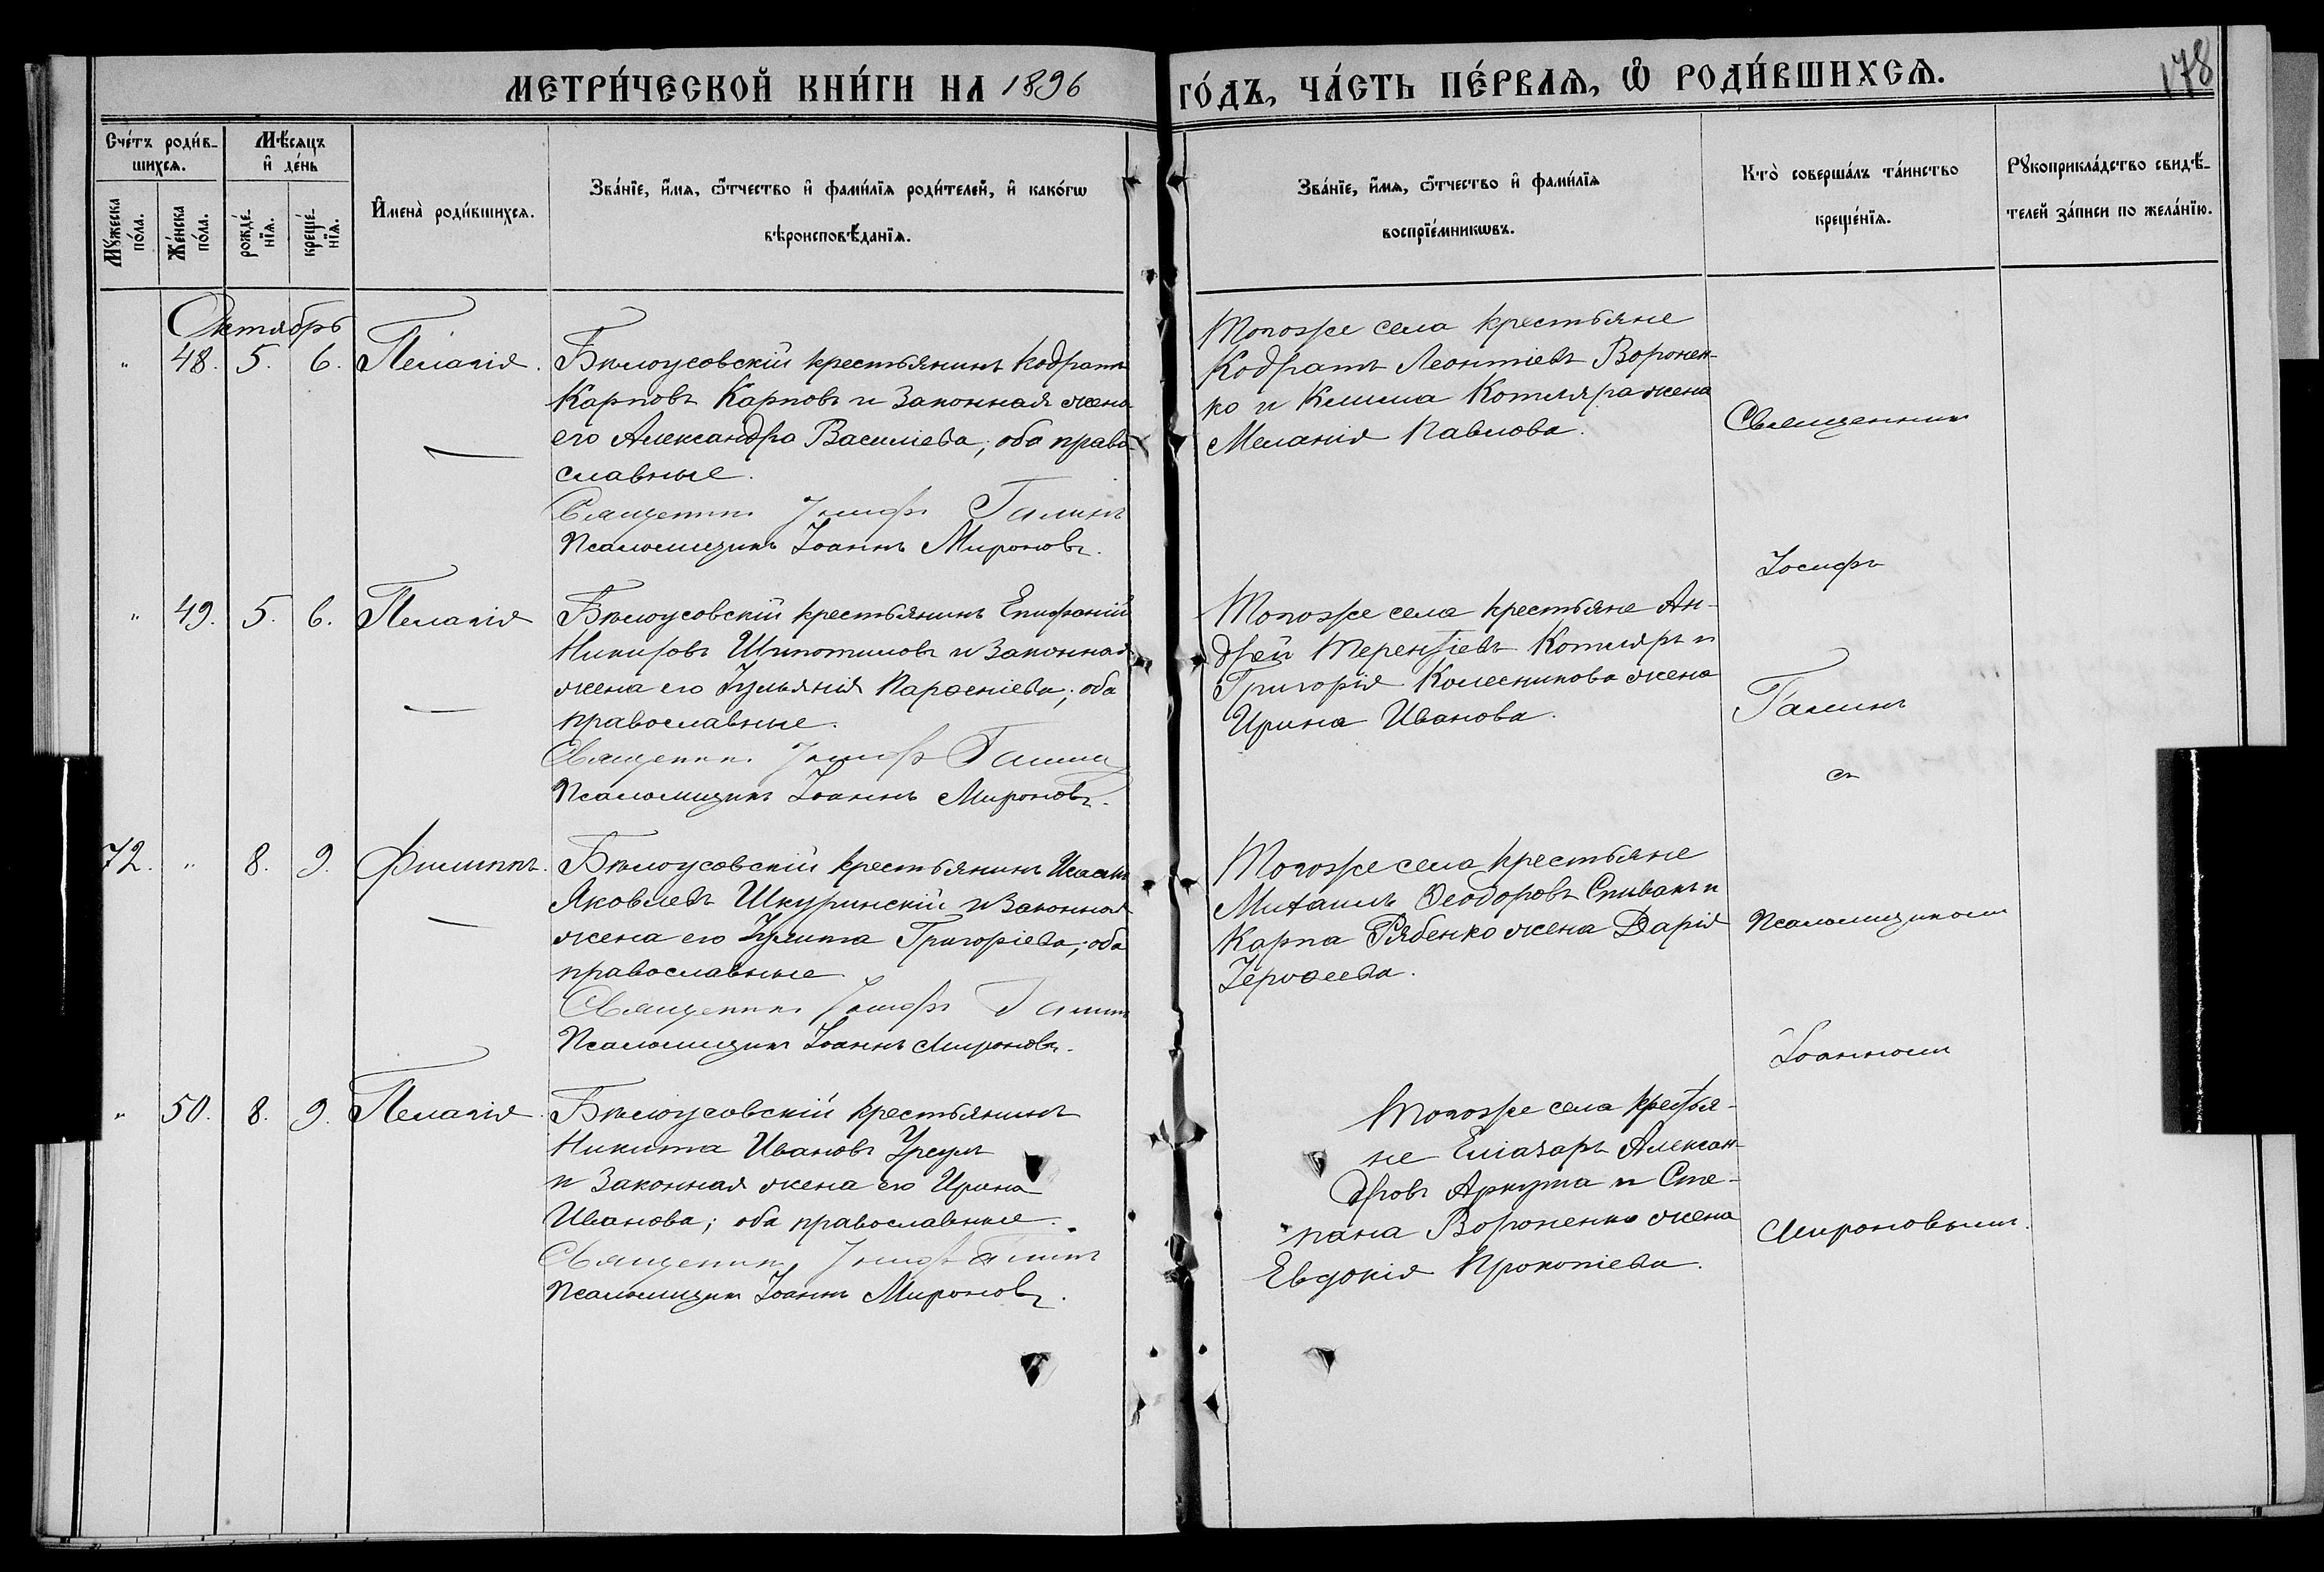 МЕТРИ́ЧЕСКОЙ КНИ́ГИ НА 1896
ГО́ДЪ, ЧА́СТЬ ПЕ́РВАѦ, Ѽ РОДИ́ВШИХСѦ.
178
Сче́тъ роди́в-
шихсѧ.
Мѣ́сѧцъ
и҆ де́нь
Мꙋ́жеска
по́ла.
Же́нска
по́ла.
рожде́-
нїѧ.
креще́-
нїѧ.
И҆мена̀ роди́вшихсѧ.
Зва́нїе, и҆́мѧ, ѻ҆́тчество и҆ фами́лїѧ роди́телей, и҆ како́гѡ
вѣроисповѣ́данїѧ.
Зва́нїе, и҆́мѧ, ѻ҆́тчество и҆ фами́лїѧ
воспрїе́мникѡвъ.
Кто̀ соверша́лъ та́инство
креще́нїѧ.
Рꙋкоприкла́дство свидѣ́-
телей за́писи по жела́нїю.
Октябрь
" 48. 5. 6. Пелагія.
Бѣлоусовскій крестьянинъ Кодратъ
Карповъ Карповъ и законная жена
его Александра Василіева; оба право-
славные.
Священникъ Іосифъ Галинъ
Псаломщикъ Іоаннъ Мироновъ.
Тогоже села крестьяне
Кодратъ Леонтіевъ Воронен-
ко и Климa Котляра жена
Меланія Павлова.
Священник
" 49. 5. 6. Пелагія
Бѣлоусовскій крестьянинъ Епифаній
Никифовъ Шипотиловъ и законная
жена его Іульянія Парѳеніева; оба
православные.
Священник Іосиф Галинъ
Псаломщикъ Іоаннъ Мироновъ.
Тогоже села крестьяне Ан-
дрей Терентіевъ Котляръ и
Григорія Колесникова жена
Ирина Иванова.
Іосифъ
Галинъ
съ
72. " 8. 9. Филиппъ.
Бѣлоусовскій крестьянинъ Исаакъ
Яковлевъ Шкуринскій и законная
жена его Іулита Григоріева; оба
православные
Священник Іосифъ Галинъ
Псаломщикъ Іоаннъ Мироновъ.
Тогоже села крестьяне
Михаилъ Ѳеодоровъ Спивакъ и
Карпа Рябенко жена Дарія
Іероѳеева.
Псаломщикомъ
Іоанномъ
" 50. 8. 9. Пелагія.
Бѣлоусовскій крестьянинъ
Никита Ивановъ Урсулъ
и законная жена его Ирина
Иванова; оба православные.
Священник Іосиф Галинъ
Псаломщикъ Іоаннъ Мироновъ.
Тогоже села крестья-
не Елиазаръ Алексан-
дровъ Аркуша и Сте-
пана Вороненко жена
Евдокія Прокопіева.
Мироновымъ.